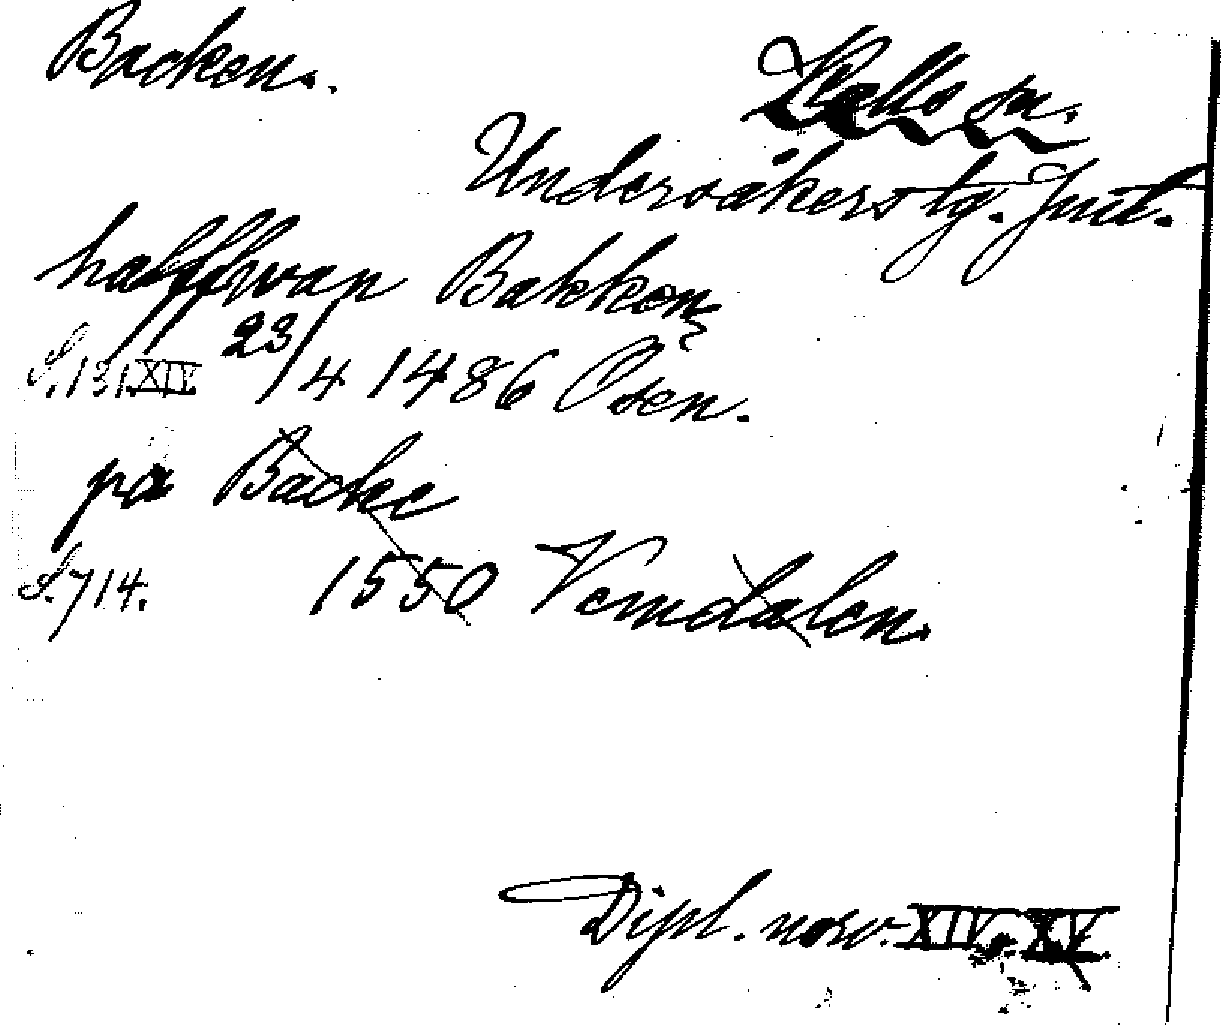 Backen.
Kalls sn.
Undersåkers tg. Jmtl.
halffwan Bakken
S. 131. XIV 23/4 1486 Osen.
på Backe
S. 714. 1550 Vemdalen.
Dipl. norv. XIV, XV